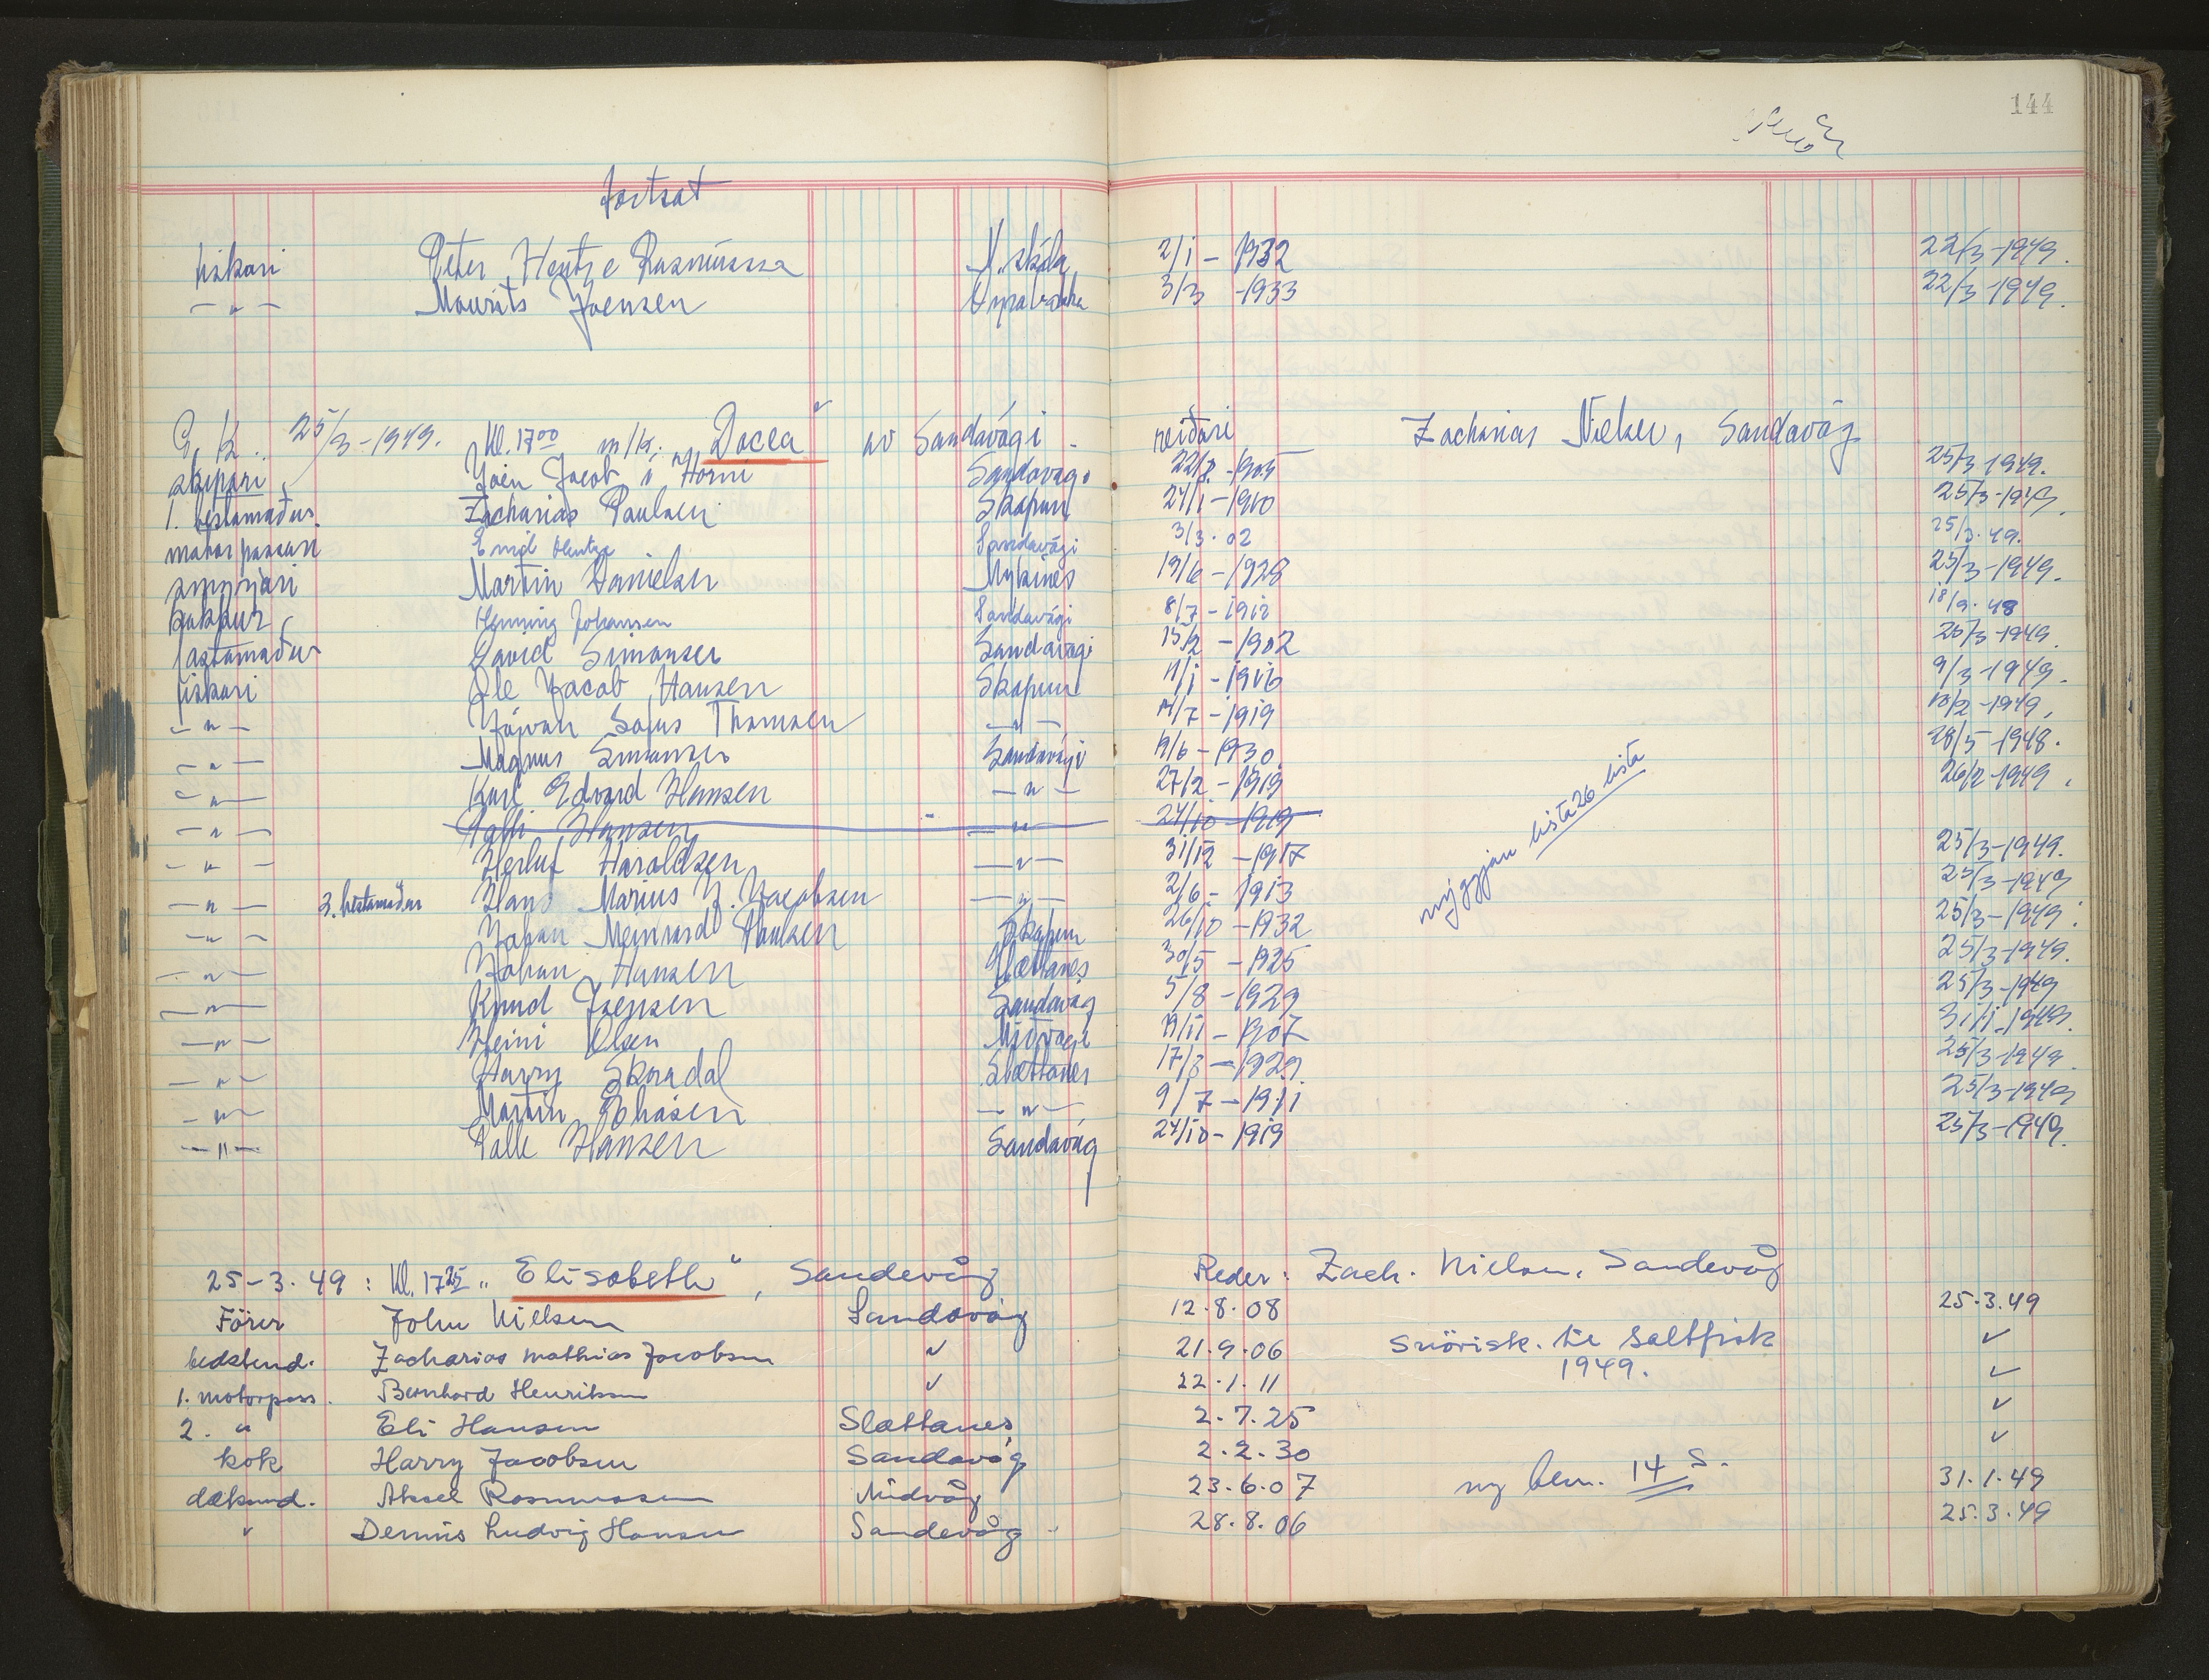 144
fortsat
fiskari Peter Hentze Rasmussen N. skála 2/1 - 1932 22/3-1949.
— " — Maurits Joensen 3/3 -1933 22/3-1949.
25/3-1949. Kl. 17 00 m/k. "Docea" av Sandavági. reiðari Zacharias Nielsen, Sandavág
skipari Jóen Jacob í Horni Sandavági 22/8 -1905 25/3 1949.
1. bestamaður Zacharias Paulsen Skopun 24/1-1910 25/3-1949.
motorpassari Emil Hentze Sandavági 3/3.02 25/3.49.
smyrjari Martin Danielsen Mykines 19/6-1928 25/3-1949.
kokkur Henning Johansen Sandavági 8/7-1912 18/9.48
lastamaður David Simonsen Sandavági 15/2 -1902 25/3-1949
fiskari Ole Jacob Hansen Skopun 11/1-1916 9/3-1949.
— " — Jógvan Sofus Thomsen — " — 14/7-1919 10/2-1949,
— " — Magnus Simonsen Sandavági 19/6-1930 28/5-1948.
— " — Karl Edvard Hansen — " — 27/2-1919 26/2-1949,
— " — Palli Hansen — " — 24/10-1919
— " — Herluf Haraldsen — " — 31/12-1917 25/3-1949.
— " — 2. bestamaður Hans Marius J. Jacobsen — " — 2/6-1913 25/3-1949
— " — Johan Meinhard Paulsen Skopun 26/10-1932 25/3-1949.
— " — Johan Hansen Slættanes 30/5-1925 25/3-1949.
— " — Knud Joensen Sandavág 5/8-1929 25/3-1949
— " — Heini Olsen Miðvági 19/11-1907 31/1-1949.
— " — Harry Skoradal Slættanes 17/3-1929. 25/3-1949.
— " — Martin Johasen — " — 9/7-1911 25/3-1949
— " — Palle Hansen Sandavág 24/10-1919 25/3-1949.
nýggjan lista 26 lista
25-3.49: Kl. 17 25 "Elisabeth", Sandevåg Reder: Zach. Nielsen, Sandevåg
Förer John Nielsen Sandavág 12.8.08 25.3.49
bedstmd. Zacharias Mathias Jacobsen " 21.9.06 Snörisk. til saltfisk 1949. "
1. motorpass. Bernhard Henriksen " 22.1.11 "
2. " Eli Hansen Slættanes 2.7.25 "
kok Harry Jacobsen Sandavág 2.2.30 "
dæksmd. Aksel Rasmussen Midvåg 23.6.07 ny bem. 14 S. 31.1.49
" Dennis Ludvig Hansen Sandevåg 28.8.06 25.3.49